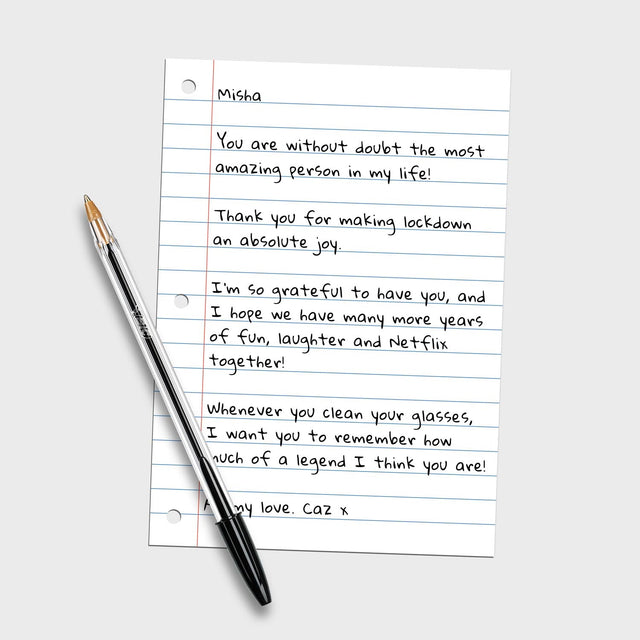 Misha
You are without doubt the most
amazing person in my life!
Thank you for making lockdown
an absolute joy.
I'm so grateful to have you, and
I hope we have many more years
of fun, laughter and Netflix
together!
Whenever you clean your glasses,
I want you to remember how
much of a legend I think you are!
my love. Caz x